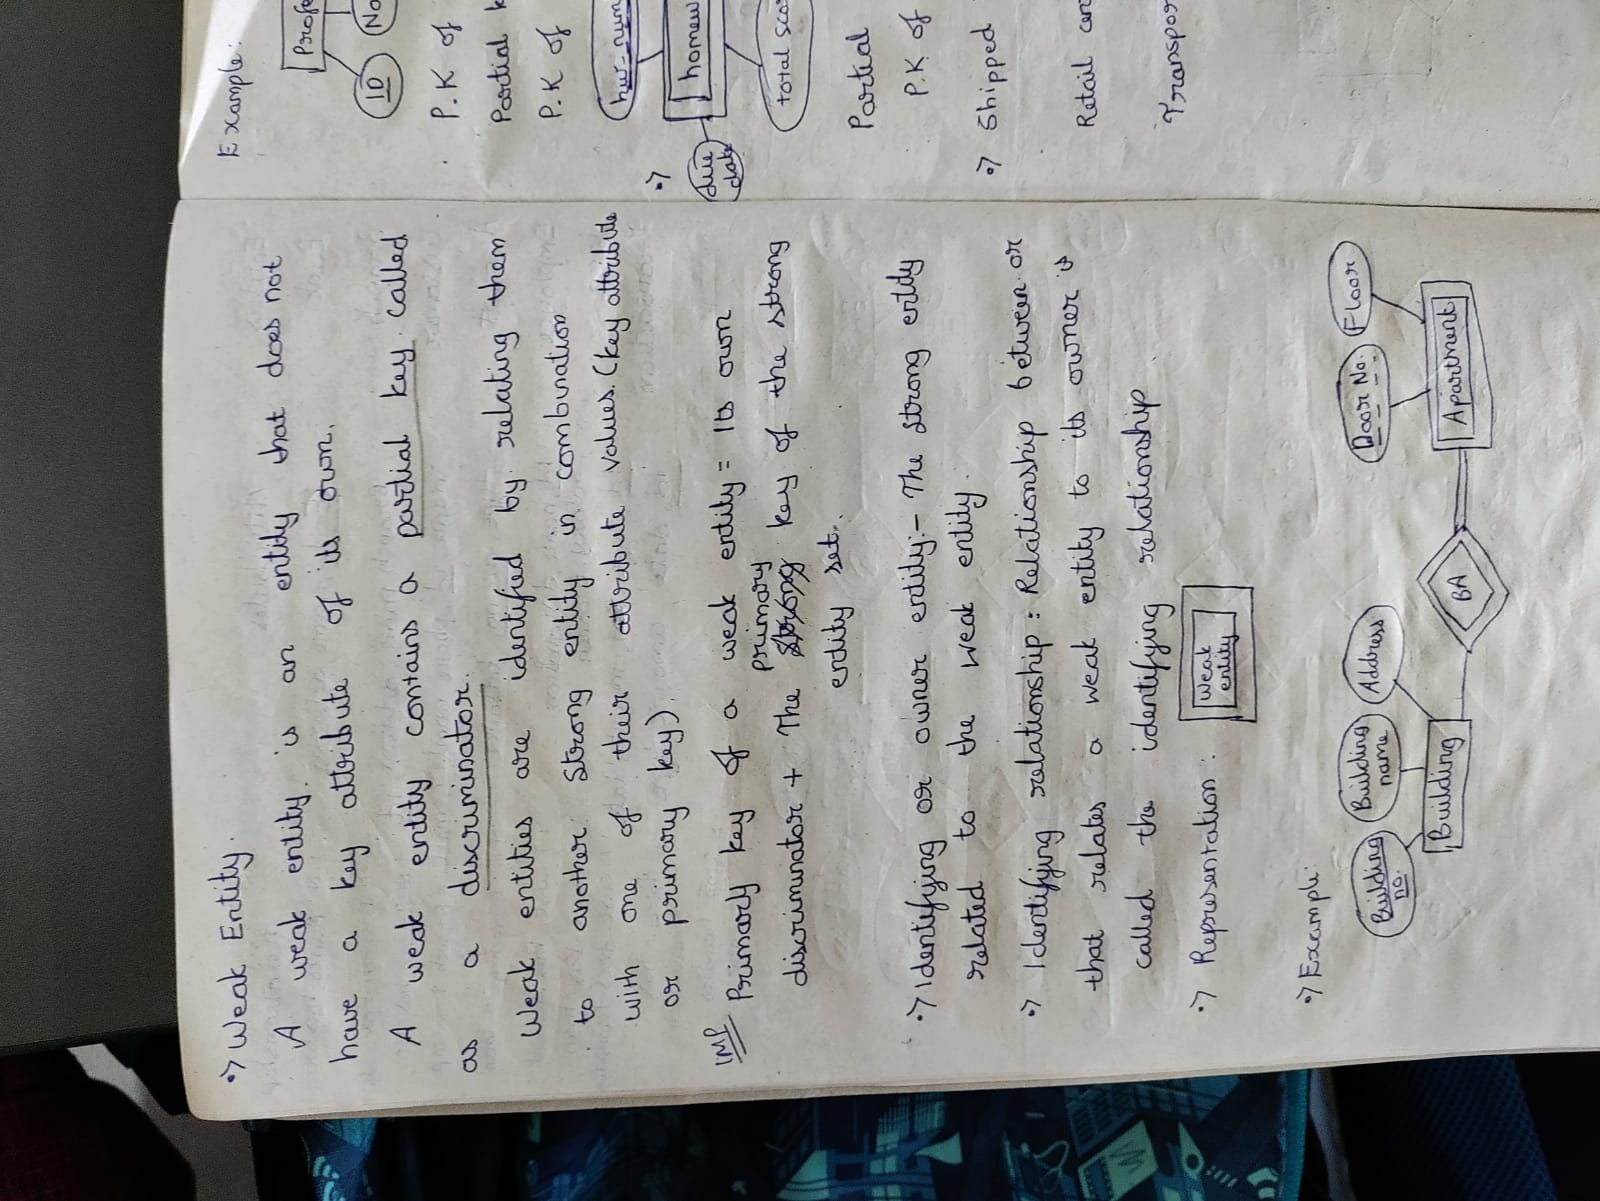 •> Weak Entity.
A weak entity is an entity that does not
have a key attribute of its own.
A weak entity contains a partial key called
as a discriminator.
Weak entities are identified by relating them
to another strong entity in combination
with one of their attribute values. (key attribute
or primary key).
IMP
Primary key of a weak entity = Its own
primary
discriminator + The strong key of the strong
entity set.
•> Identifying or owner entity:- The strong entity
related to the weak entity.
•> Identifying relationship : Relationship between or
that relates a weak entity to its owner is
called the identifying relationship
•> Representation :
Weak
entity
•> Example:
Building
no.
Building
name
Address
Door No.
Floor
Building
BA
Apartment
Example:
ID
P.K of
Partial
P.K of
•>
due
date
total
Partial
P.K of
•> Shipped
Retail